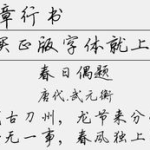 章行书
买正版字体就上
春日偶题
唐代.武元衡
古刀州，龙节来分
无一事，春风独上